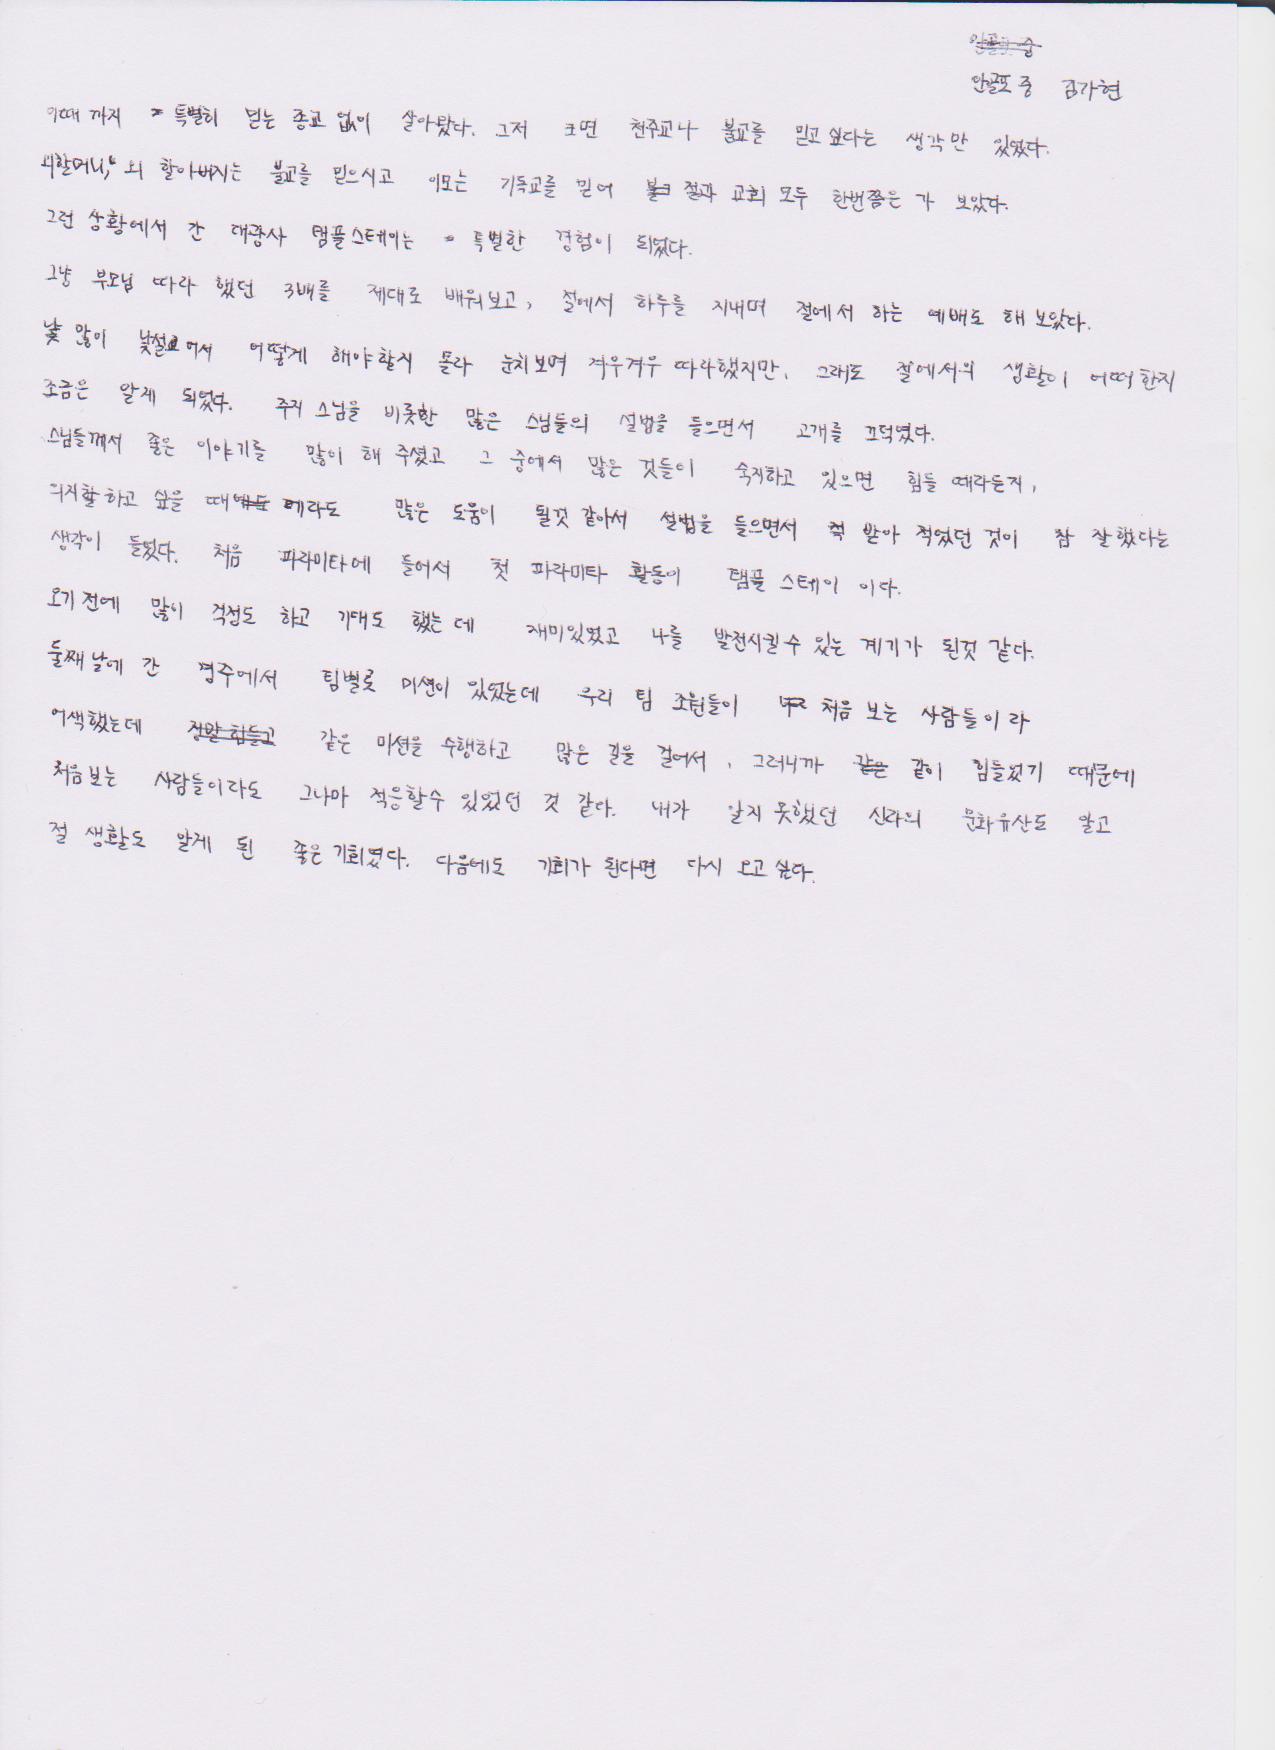 안골포중 김가현
이때까지 특별히 믿는 종교 없이 살아왔다. 그저 크면 천주교나 불교를 믿고 싶다는 생각만 있었다.
외할머니, 외 할아버지는 불교를 믿으시고 이모는 기독교를 믿어 절과 교회 모두 한번쯤은 가 보았다.
그런 상황에서 간 대광사 템플스테이는 특별한 경험이 되었다.
그냥 부모님 따라 했던 3배를 제대로 배워보고, 절에서 하루를 지내며 절에서 하는 예배도 해 보았다.
많이 낯설어서 어떻게 해야할지 몰라 눈치보며 겨우겨우 따라했지만, 그래도 절에서의 생활이 어떠한지
조금은 알게 되었다. 주지 스님을 비롯한 많은 스님들의 설법을 들으면서 고개를 끄덕였다.
스님들께서 좋은 이야기를 많이 해 주셨고 그 중에서 많은 것들이 숙지하고 있으면 힘들 때라든지,
의지할하고 싶을 때에라도 많은 도움이 될것 같아서 설법을 들으면서 받아 적었던 것이 참 잘했다는
생각이 들었다. 처음 파라미타에 들어서 첫 파라미타 활동이 탬플 스테이 이다.
오기 전에 많이 걱정도 하고 기대도 했는데 재미있었고 나를 발전시킬수 있는 계기가 된것 같다.
둘째날에 간 경주에서 팀별로 미션이 있었는데 우리 팀 조원들이 처음 보는 사람들이라
어색했는데 같은 미션을 수행하고 많은 길을 걸어서, 그러니까 같이 힘들었기 때문에
처음보는 사람들이라도 그나마 적응할수 있었던 것 같다. 내가 알지 못했던 신라의 문화유산도 알고
절 생활도 알게 된 좋은 기회였다. 다음에도 기회가 된다면 다시 오고 싶다.